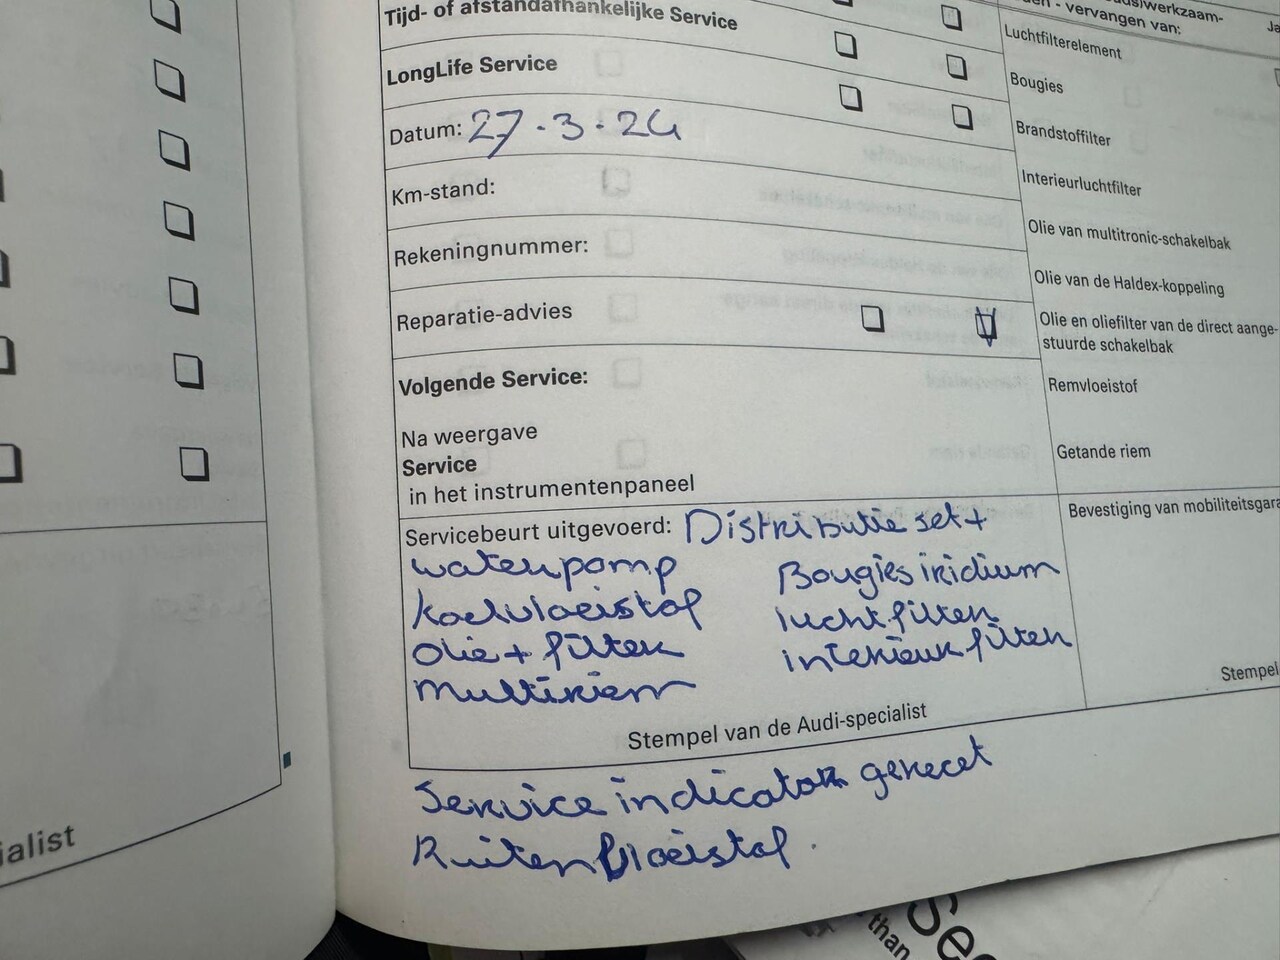 Tijd- of afstandafhankelijke Service
LongLife Service
Datum: 27.3.24
Km-stand:
Rekeningnummer:
Reparatie-advies
Volgende Service:
Na weergave
Service
in het instrumentenpaneel
Servicebeurt uitgevoerd: Distributie set+
waterpomp
Koelvloeistof
Olie + filter
Multiriem
Bougies iridium
luchtfilter
interieur filter
Stempel van de Audi-specialist
Service indicator gereset
Ruitenvloeistof.
vervangen van:
Ja
Luchtfilterelement
Bougies
Brandstoffilter
Interieurluchtfilter
Olie van multitronic-schakelbak
Olie van de Haldex-koppeling
Olie en oliefilter van de direct aange-
stuurde schakelbak
Remvloeistof
Getande riem
Bevestiging van mobiliteitsgara
Stempel
ialist
than
See